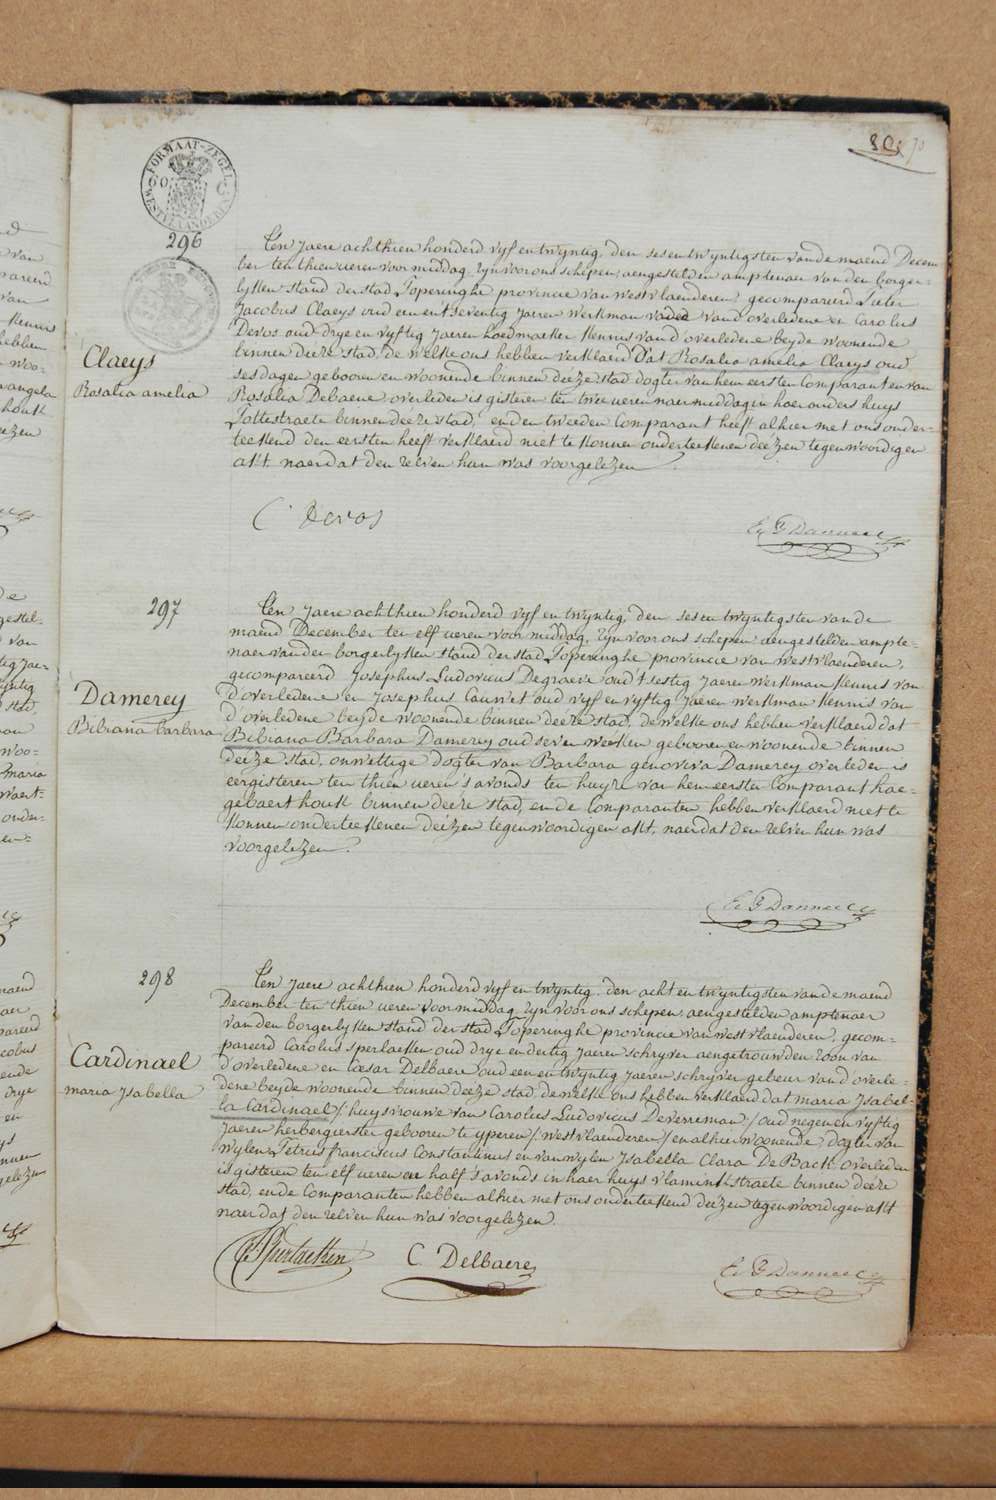 FORMAAT-ZEGEL
WESTVLAANDEREN
296
Claeys
Rosalia amelia
Ten Jaere achthien honderd vyf en twyntig, den ses en twyntigsten van de maend Decem-
ber ten thien ueren voor middag. Zyn voor ons schepen aengestelden amptenaer van den borger-
lyken stand der stad Poperinghe provincie van westvlaenderen, gecompareerd Pieter
Jacobus Claeys oud een en t'seventig Jaeren werkman vader van d'overledene en Carolus
Devos oud drye en vyftig Jaeren hoedmaeker kennis van d'overledene beyde woonende
binnen deeze stad, de welke ons hebben verklaerd Dat Rosalia amelia Claeys oud
ses dagen gebooren en woonende binnen deeze stad dogter van hem eersten Comparant en van
Rosalia Debaene overleden is gisteren ten twee ueren naermiddag in haer ouders huys
Pottestraete binnen deeze stad, en den tweeden Comparant heeft alhier met ons onder-
teekend den eersten heeft verklaerd niet te konnen onderteekenen deezen tegenwoordigen
akt. naerdat den zelven hun was voorgelezen
C Devos
297
Damerey
Bibiana barbara
Ten Jaere achthien honderd vyf en twyntig, den ses en twyntigsten van de
maend December ten elf ueren voor middag, Zyn voor ons schepen aengestelden ampte-
naer van den borgerlyken stand der stad Poperinghe provincie van westvlaenderen,
gecompareerd Josephus Ludovicus Degraeve oud t'sestig Jaeren werkman kennis van
d'overledene en Josephus Cauwet oud vyf en vyftig Jaeren werkman kennis van
d'overledene beyde woonende binnen deeze stad, de welke ons hebben verklaerd dat
Bibiana Barbara Damerey oud seven weeken gebooren en woonende binnen
deeze stad, onwettige dogter van Barbara genoviva Damerey overleden is
eergisteren ten thien ueren s'avonds ten huyze van hem eersten Comparant hae-
gebaert houk binnen deeze stad, en de Comparanten hebben verklaerd niet te
konnen onderteekenen deezen tegenwoordigen akt, naerdat den zelven hun was
voorgelezen.
298
Cardinael
maria Ysabella
Ten Jaere achthien honderd vyf en twyntig. den acht en twyntigsten van de maend
December ten thien ueren voor middag Zyn voor ons schepen aengestelden amptenaer
van den borgerlyken stand der stad Poperinghe provincie van westvlaenderen, gecom-
pareerd Carolus sperlaeken oud drye en dertig Jaeren schryver aengetrouwden zoon van
d'overledene en Cæsar Delbaere oud een en twyntig Jaeren schryver gebeur van d'overle-
dene beyde woonende binnen deeze stad. de welke ons hebben verklaerd dat maria Ysabel-
la Cardinael / huysvrouwe van Carolus Ludovicus Deverrieman / oud negen en vyftig
Jaeren herbergierster gebooren te yperen / westvlaenderen / en alhier woonende, dogter van
wylen Petrus franciscus Constantinus en van wylen Ysabella Clara De Back overleden
is gisteren ten elf ueren en half s'avonds in haer huys vlamink straete binnen deeze
stad, en de Comparanten hebben alhier met ons onderteekend deezen tegenwoordigen akt
naer dat den zelven hun was voorgelezen
C Sperlaeken
C. Delbaere